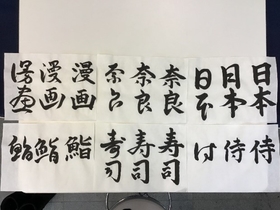 日本
日本
日本
奈良
奈良
奈良
漫画
漫画
漫画
侍
侍
侍
寿司
寿司
寿司
鮨
鮨
鮨